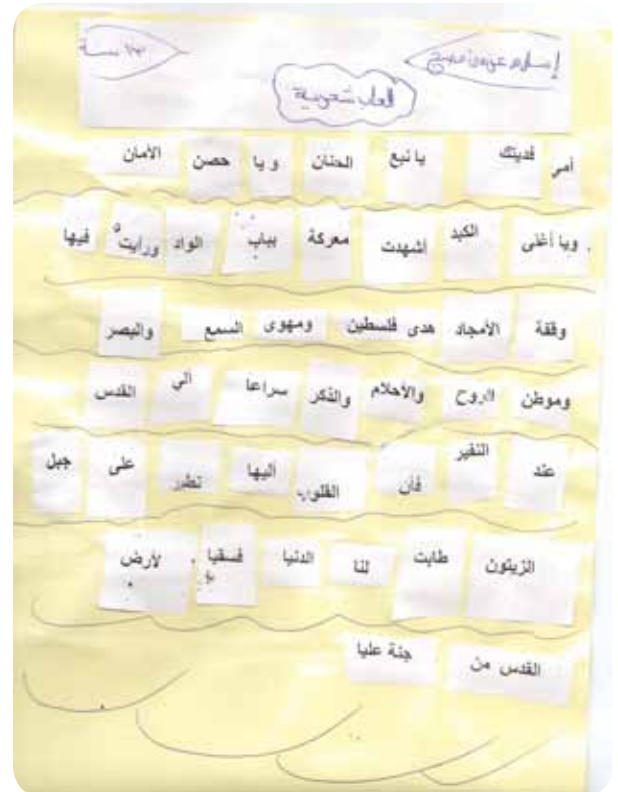 إسلام ١٣ سنة
ألعاب شعرية
أمي فديتك يا نبع الحنان و يا حصن الأمان
. ويا أغلى الكبد أشهدت معركة بباب الواد ورأيت فيها
وقفة الأمجاد هدى فلسطين ومهوى السمع والبصر
وموطن الروح والأحلام والذكر سراعا الي القدس
عند النفير فأن القلوب أليها تطير على جبل
الزيتون طابت لنا الدنيا فسقيا لأرض
القدس من جنة عليا